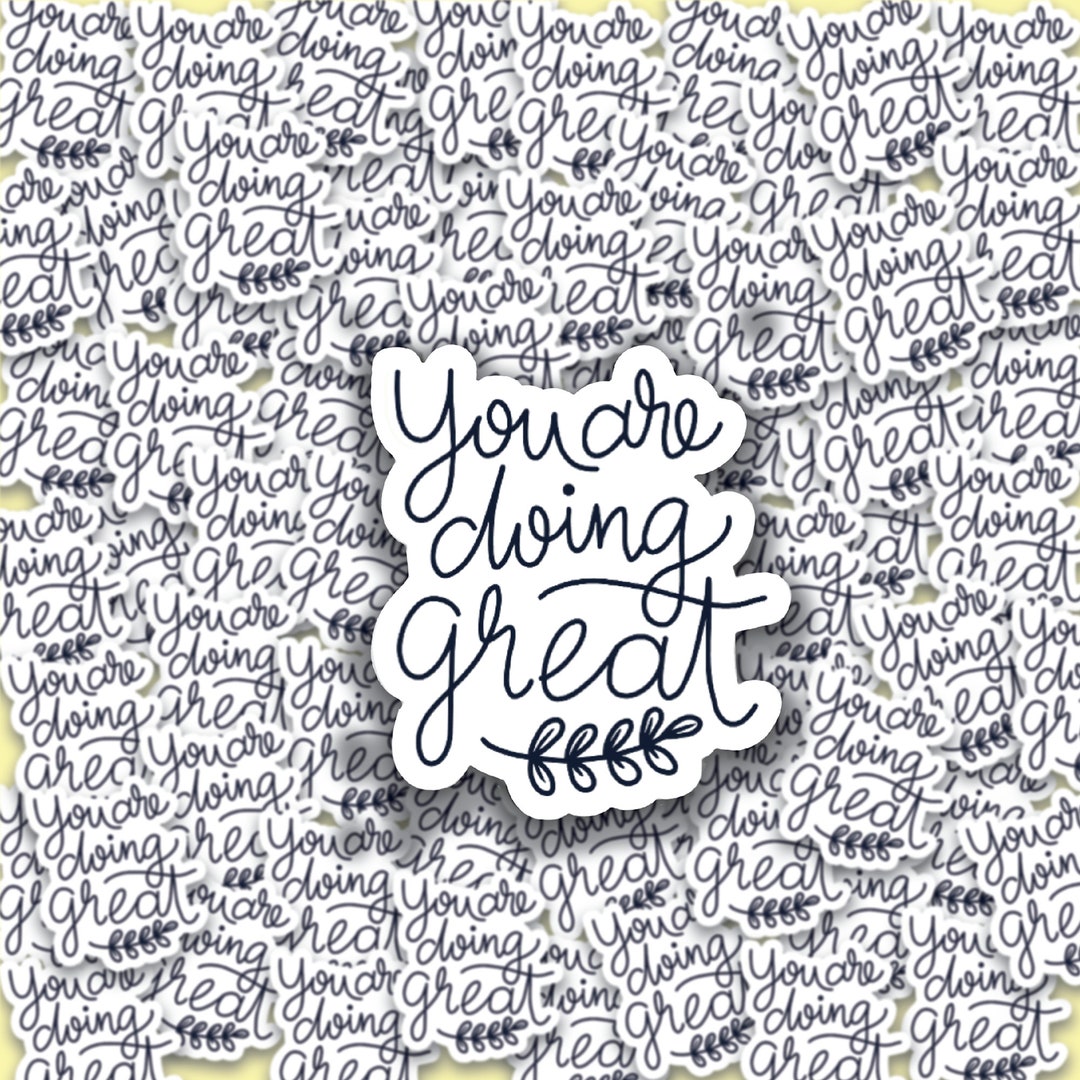 You are
doing
great